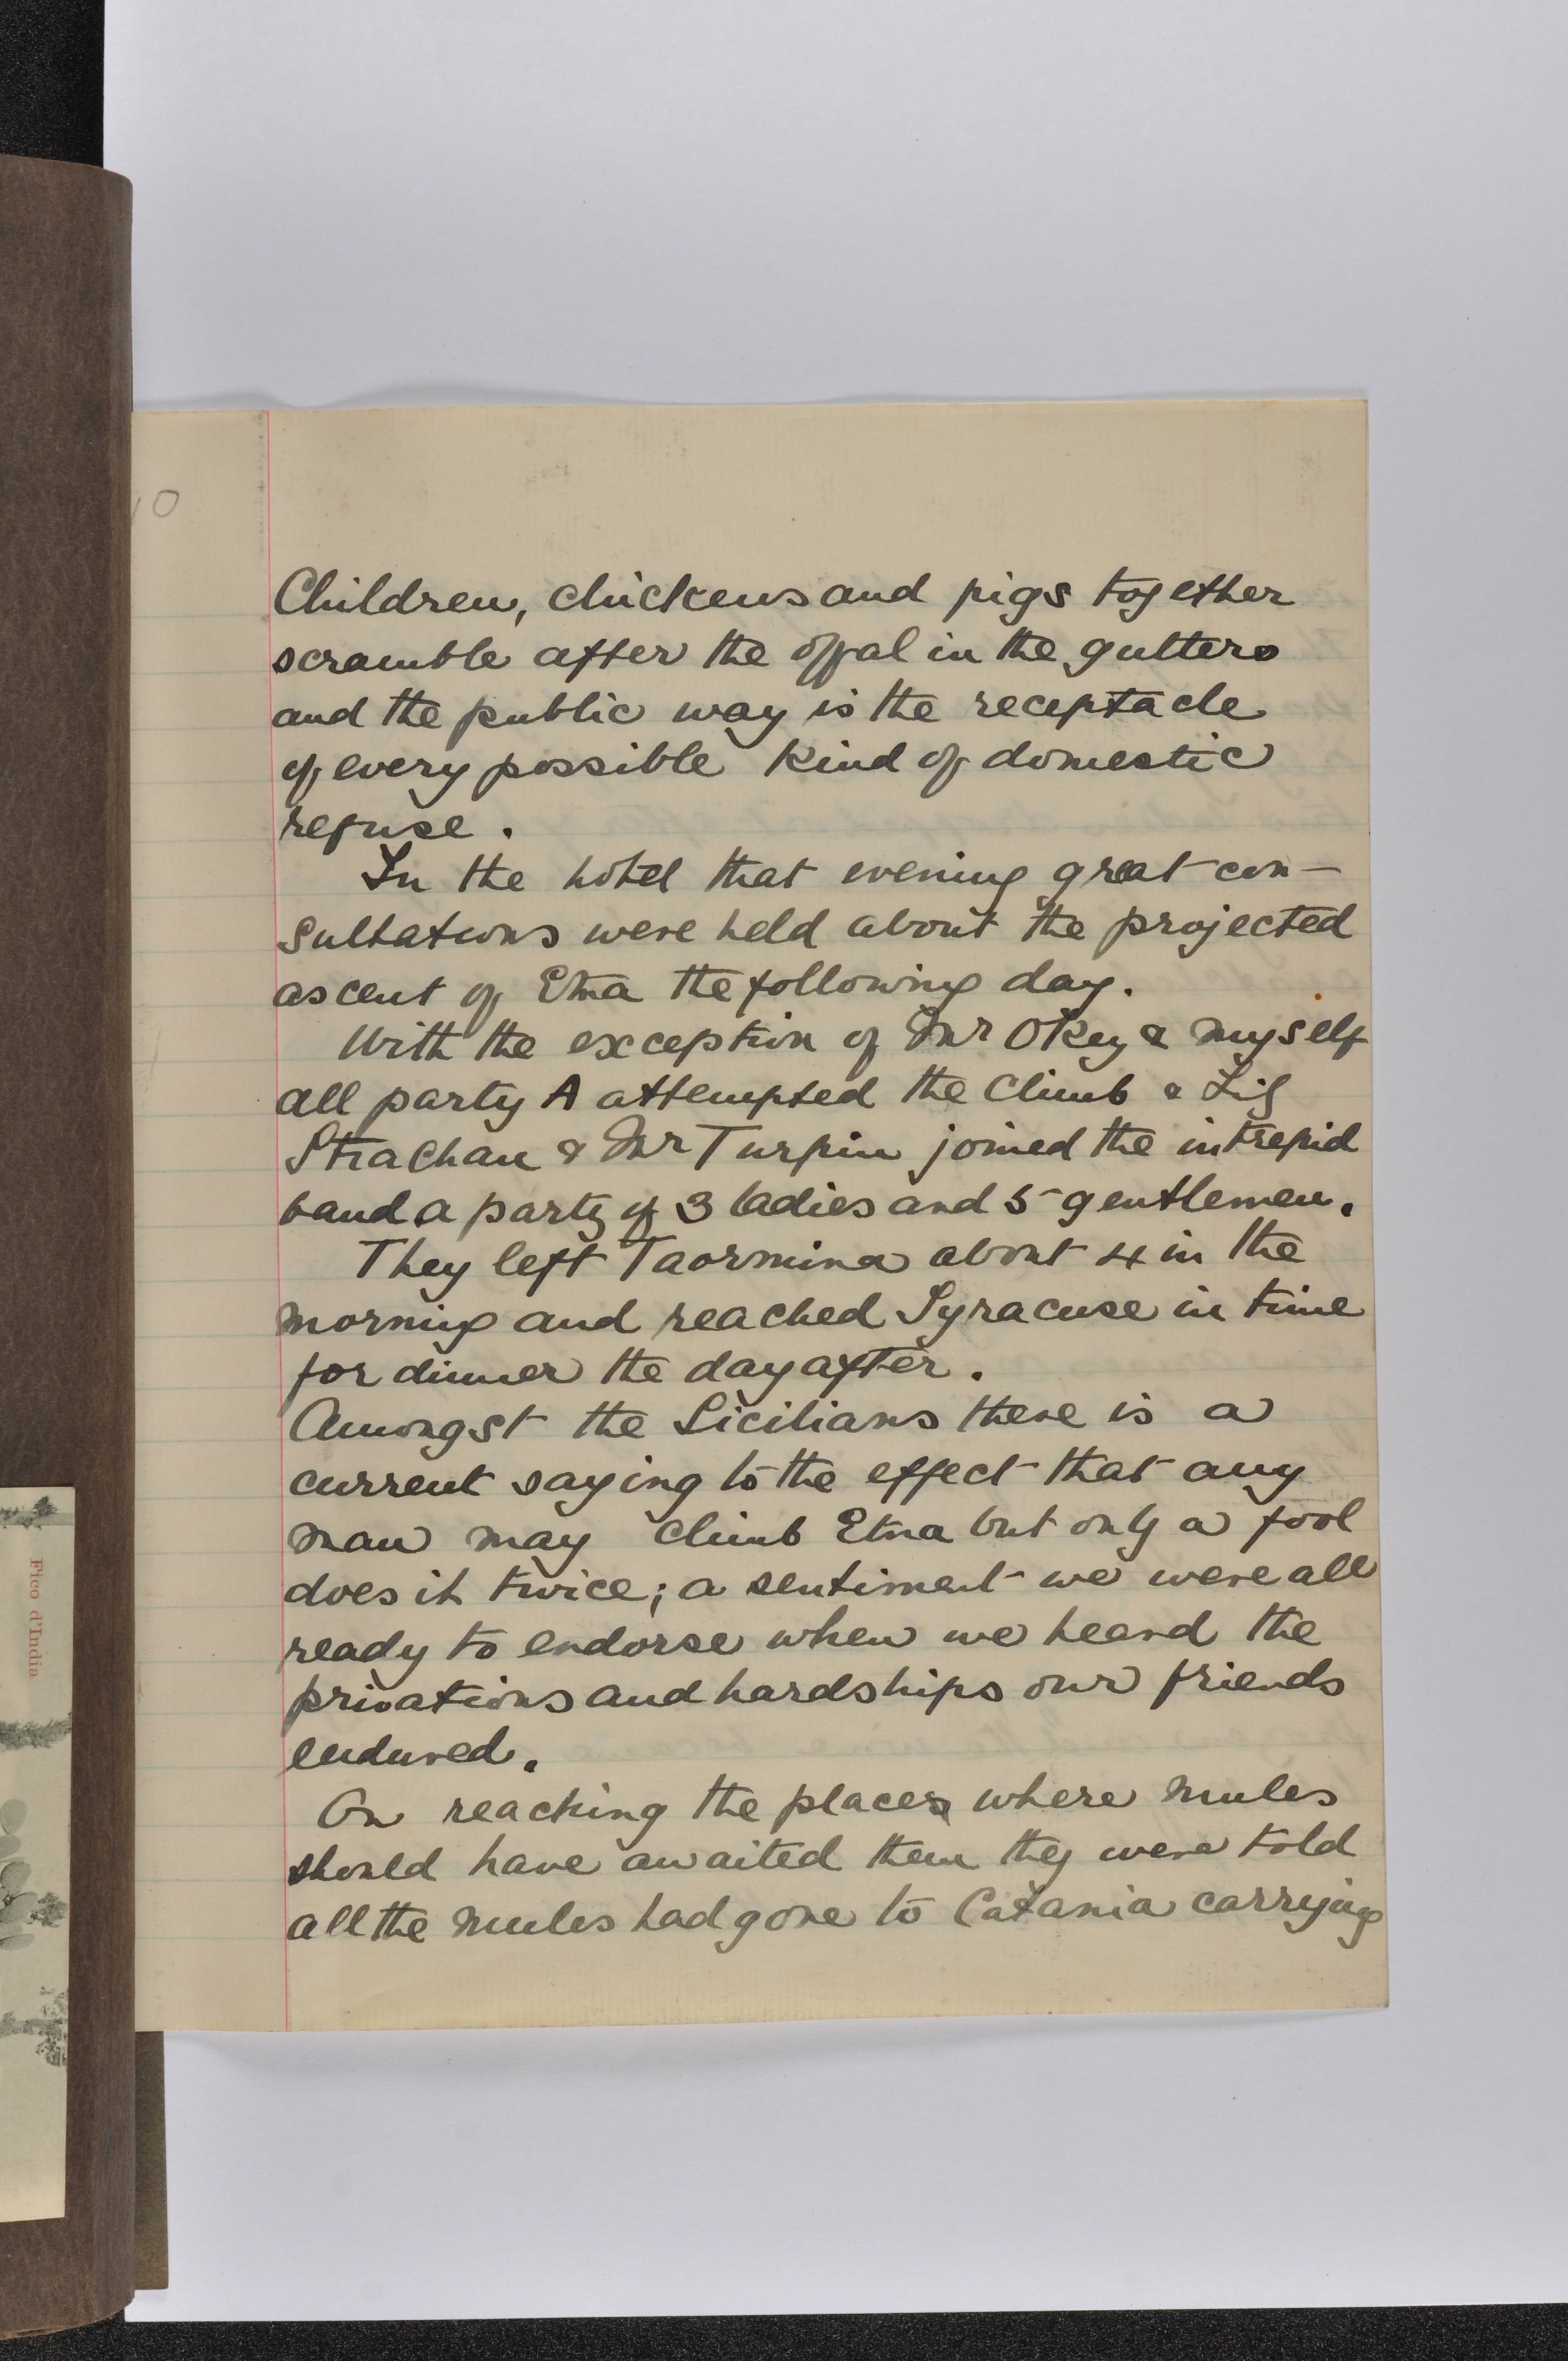 10
Children, chickens and pigs together
scramble after the offal in the gutters
and the public way is the receptacle
of every possible kind of domestic
refuse.
In the hotel that evening great con-
sultations were held about the projected
ascent of Etna the following day.
With the exception of Mr Okey & myself
all party A attempted the climb &
Strachan & Mr Turpin joined the intrepid
band a party of 3 ladies and 5 gentlemen.
They left Taormina about 4 in the
morning and reached Syracuse in time
for dinner the day after.
Amongst the Sicilians there is a
current saying to the effect that any
man may climb Etna but only a fool
does it twice; a sentiment we were all
ready to endorse when we heard the
privations and hardships our friends
endured.
On reaching the places where mules
should have awaited them they were told
all the mules had gone to Catania carrying
Fico d'India